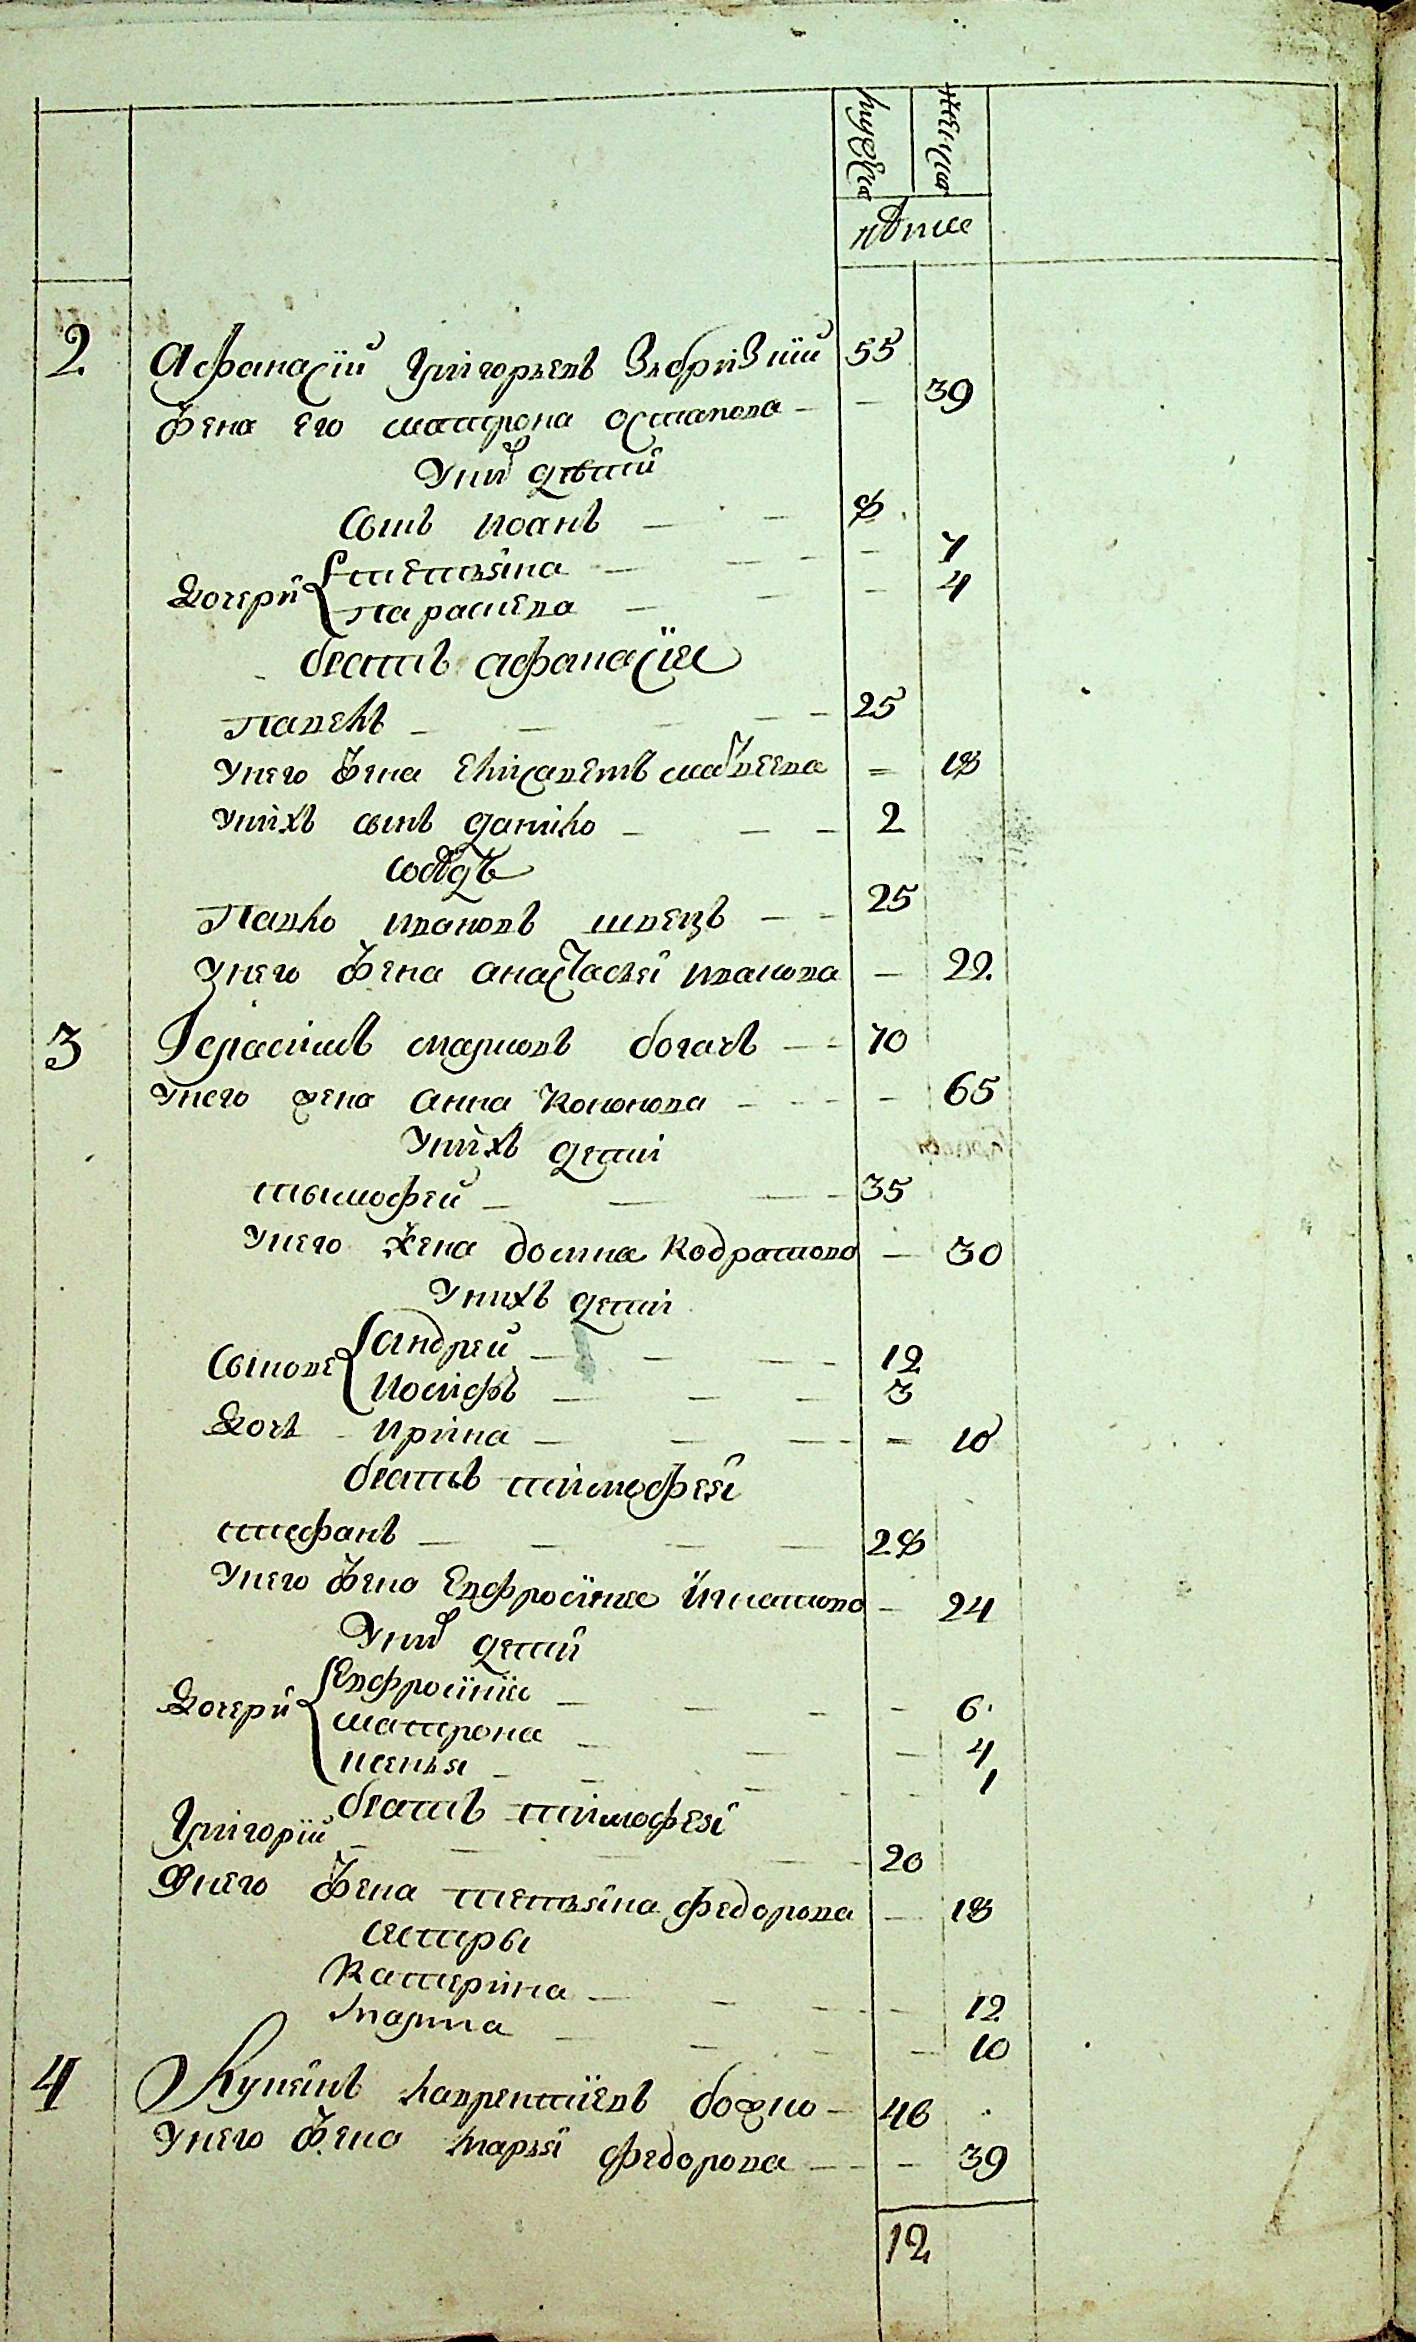 мужеска женска
лѣта
2 Афанасїй Григорьевъ Збризкїй 55
жена его матрона остапова — — 39
У них дѣти
Сынъ иоанъ — — 8
Дочери татьяна — — — 7
параскева — — — 4
братъ афанасїя
павелъ — — — — 25
У него жена елисаветъ матвеева = 18
У нихъ сынъ данило — — — 2
сосѣдъ
Павло ивановъ швецъ — — 25
У него жена анастасья иванова — 22
3 Герасимъ марковъ богачъ — — 70
У него жена анна кононова — — — — 65
У нихъ дети
тымофей — — — — 35
У него жена домна кодратова — 30
У нихъ дети
Сынове андрей — — — — 12
иосифъ — — — 3
Дочь ирина — — — — 10
братъ тимофея
стефанъ — — — — 28
У него жена Евфросиния игнатова — 24
У них дети
Дочери Евфросинїя — — — — 6
матрона — — — 4
ксенья — — — — 1
братъ тимофея
Григорїй — — — — — 20
У него жена татьяна федорова — 18
сестры
Катерина — — — — 12
марина — — — — 10
4 Лукянъ лаврентїевъ божко — 46
У него жена марья федорова — — — 39
12